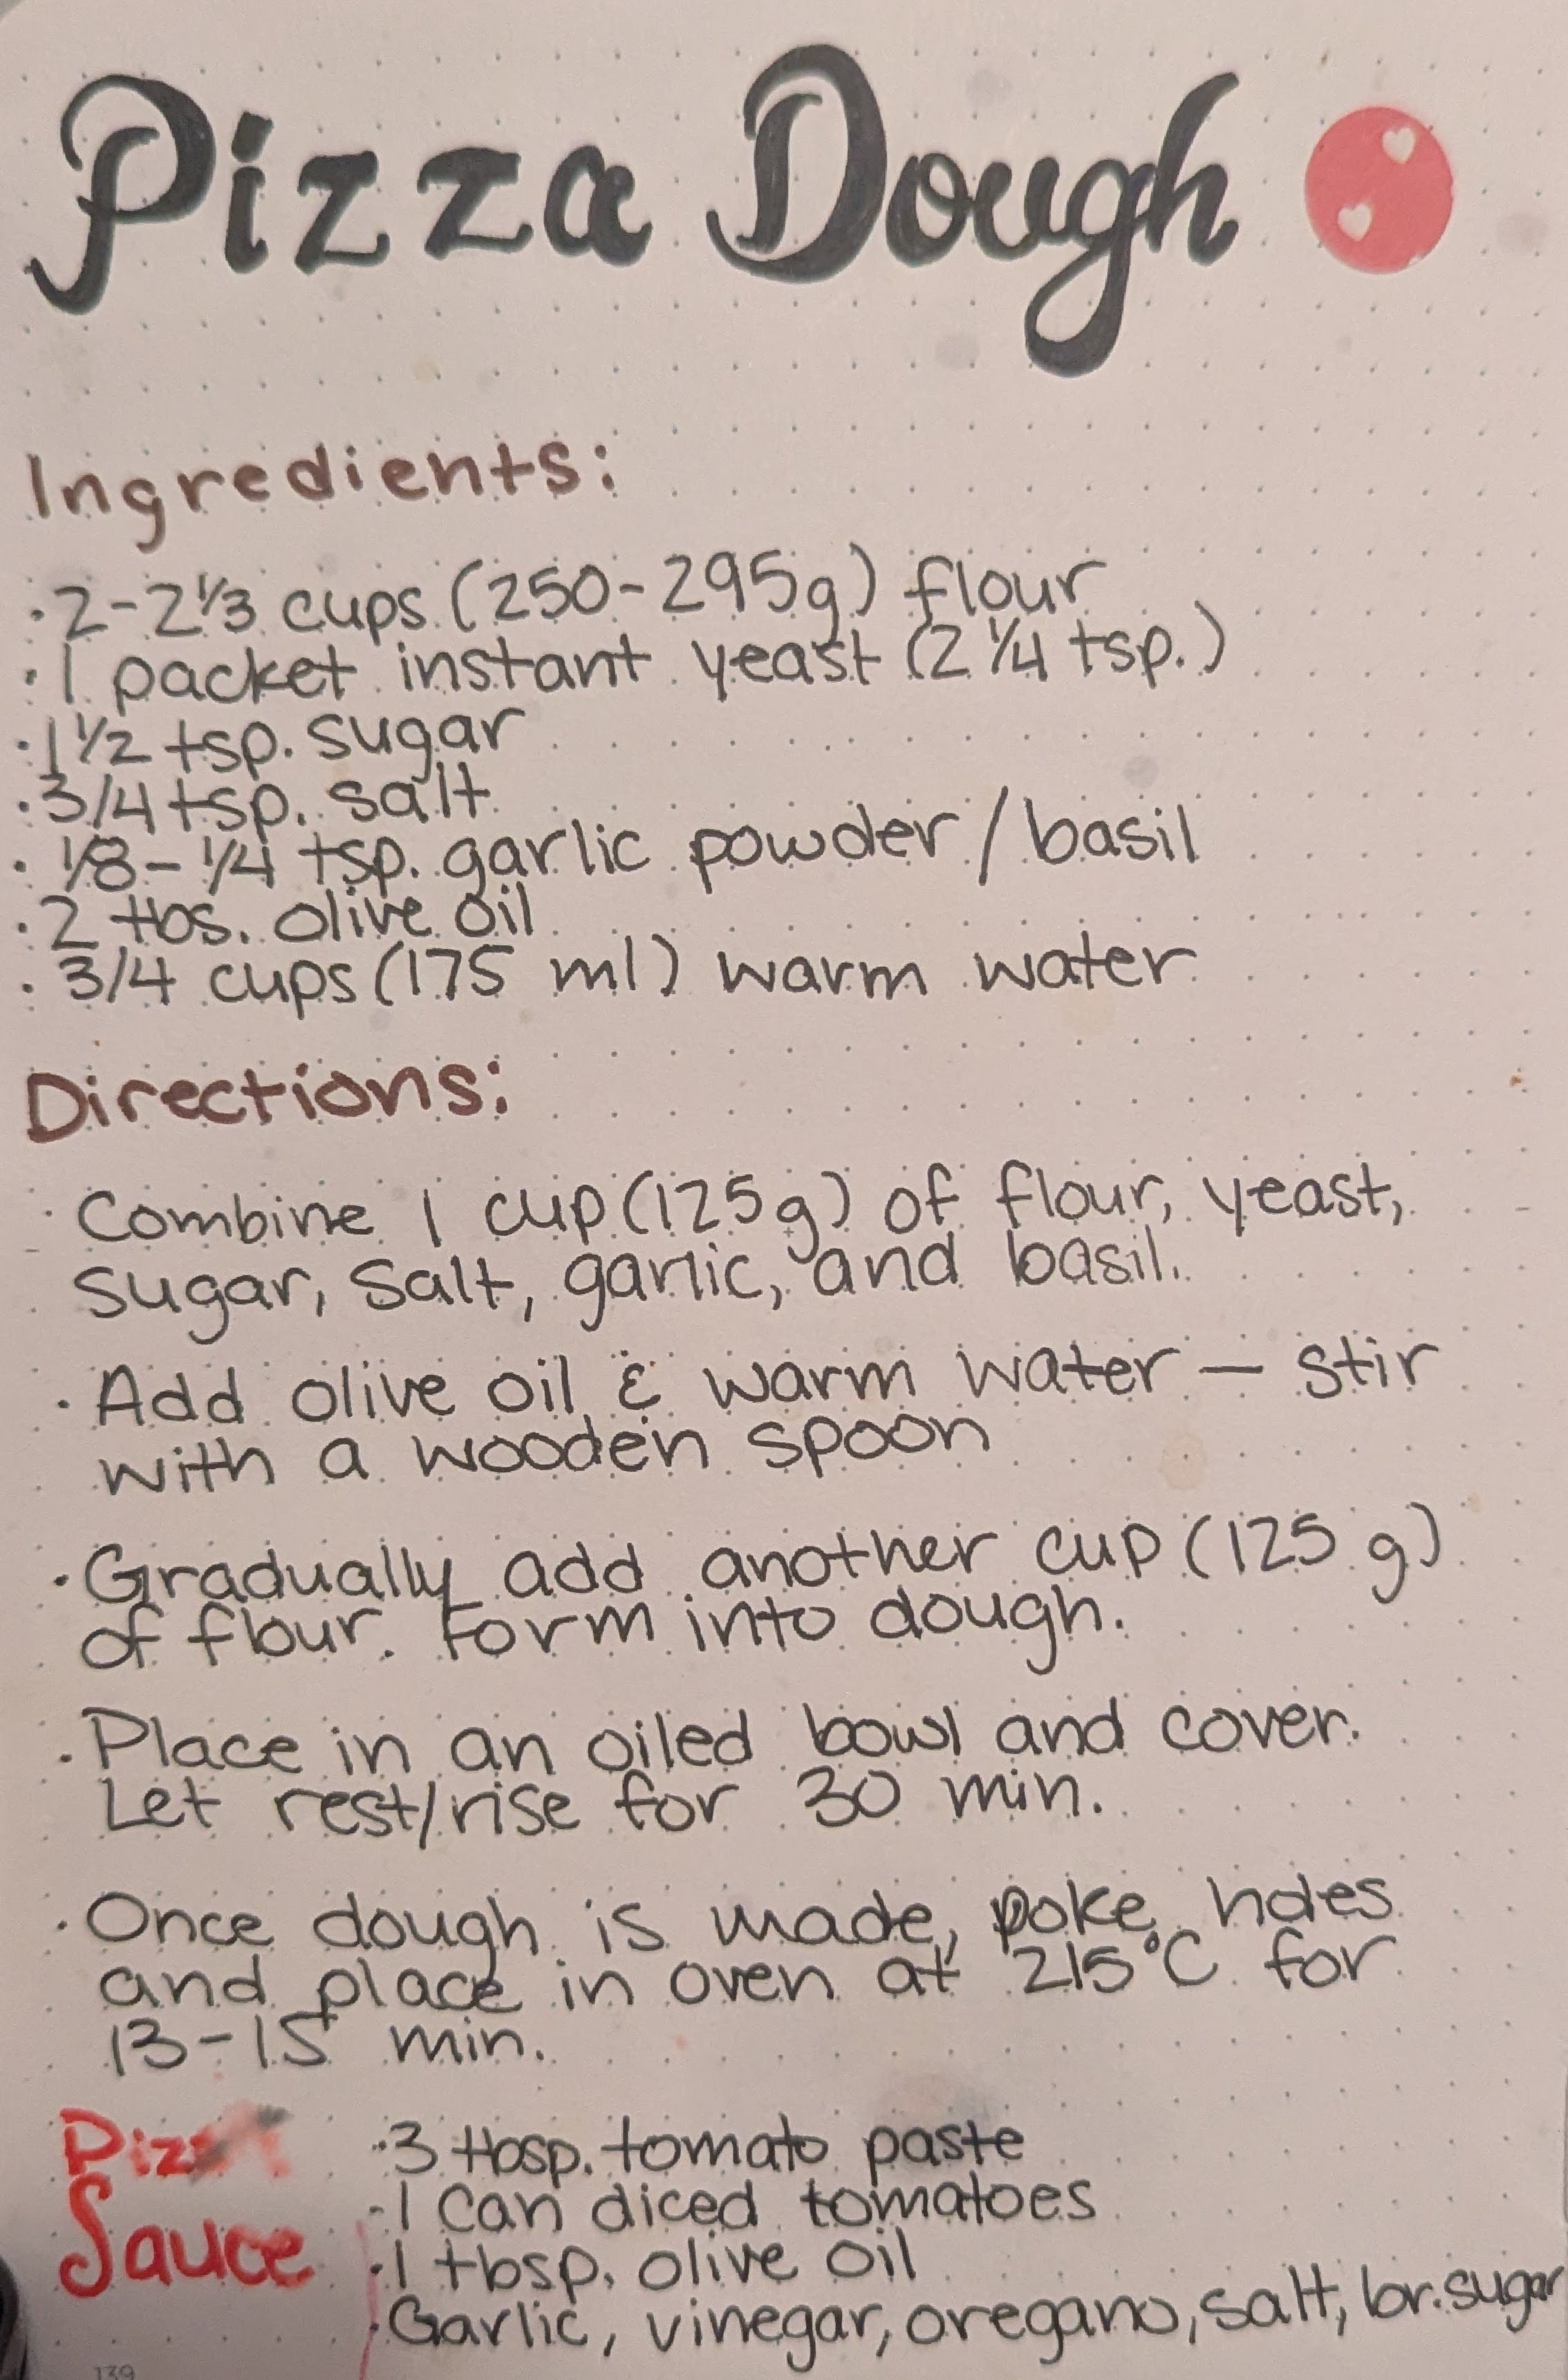 Pizza Dough
Ingredients:
· 2-2 1/3 cups (250-295g) flour
· 1 packet instant yeast (2 1/4 tsp.)
· 1 1/2 tsp. sugar
· 3/4 tsp. salt
· 1/8 - 1/4 tsp. garlic powder / basil
· 2 tbs. olive oil
· 3/4 cups (175 ml) warm water
Directions:
· Combine 1 cup (125g) of flour, yeast,
sugar, salt, garlic, and basil.
· Add olive oil & warm water — stir
with a wooden spoon
· Gradually add another cup (125 g)
of flour. Form into dough.
· Place in an oiled bowl and cover.
Let rest/rise for 30 min.
· Once dough is made, poke holes
and place in oven at 215°C for
13-15 min.
Pizza
Sauce
· 3 tbsp. tomato paste
· 1 can diced tomatoes
· 1 tbsp. olive oil
· Garlic, vinegar, oregano, salt, br. sugar
139